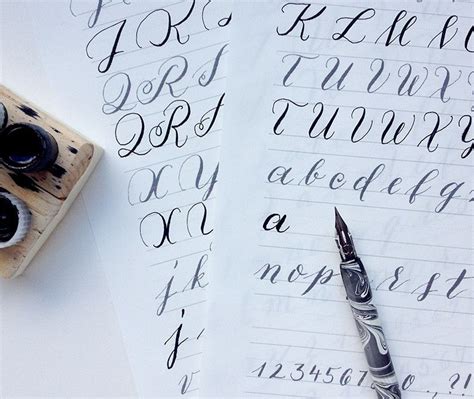 J K
Q R S
Q R S
X Y
X Y
j k
j
v
K L M N
T U V W X
T U V W X Y
a b c d e f g
a
n o p r s t
1 2 3 4 5 6 7